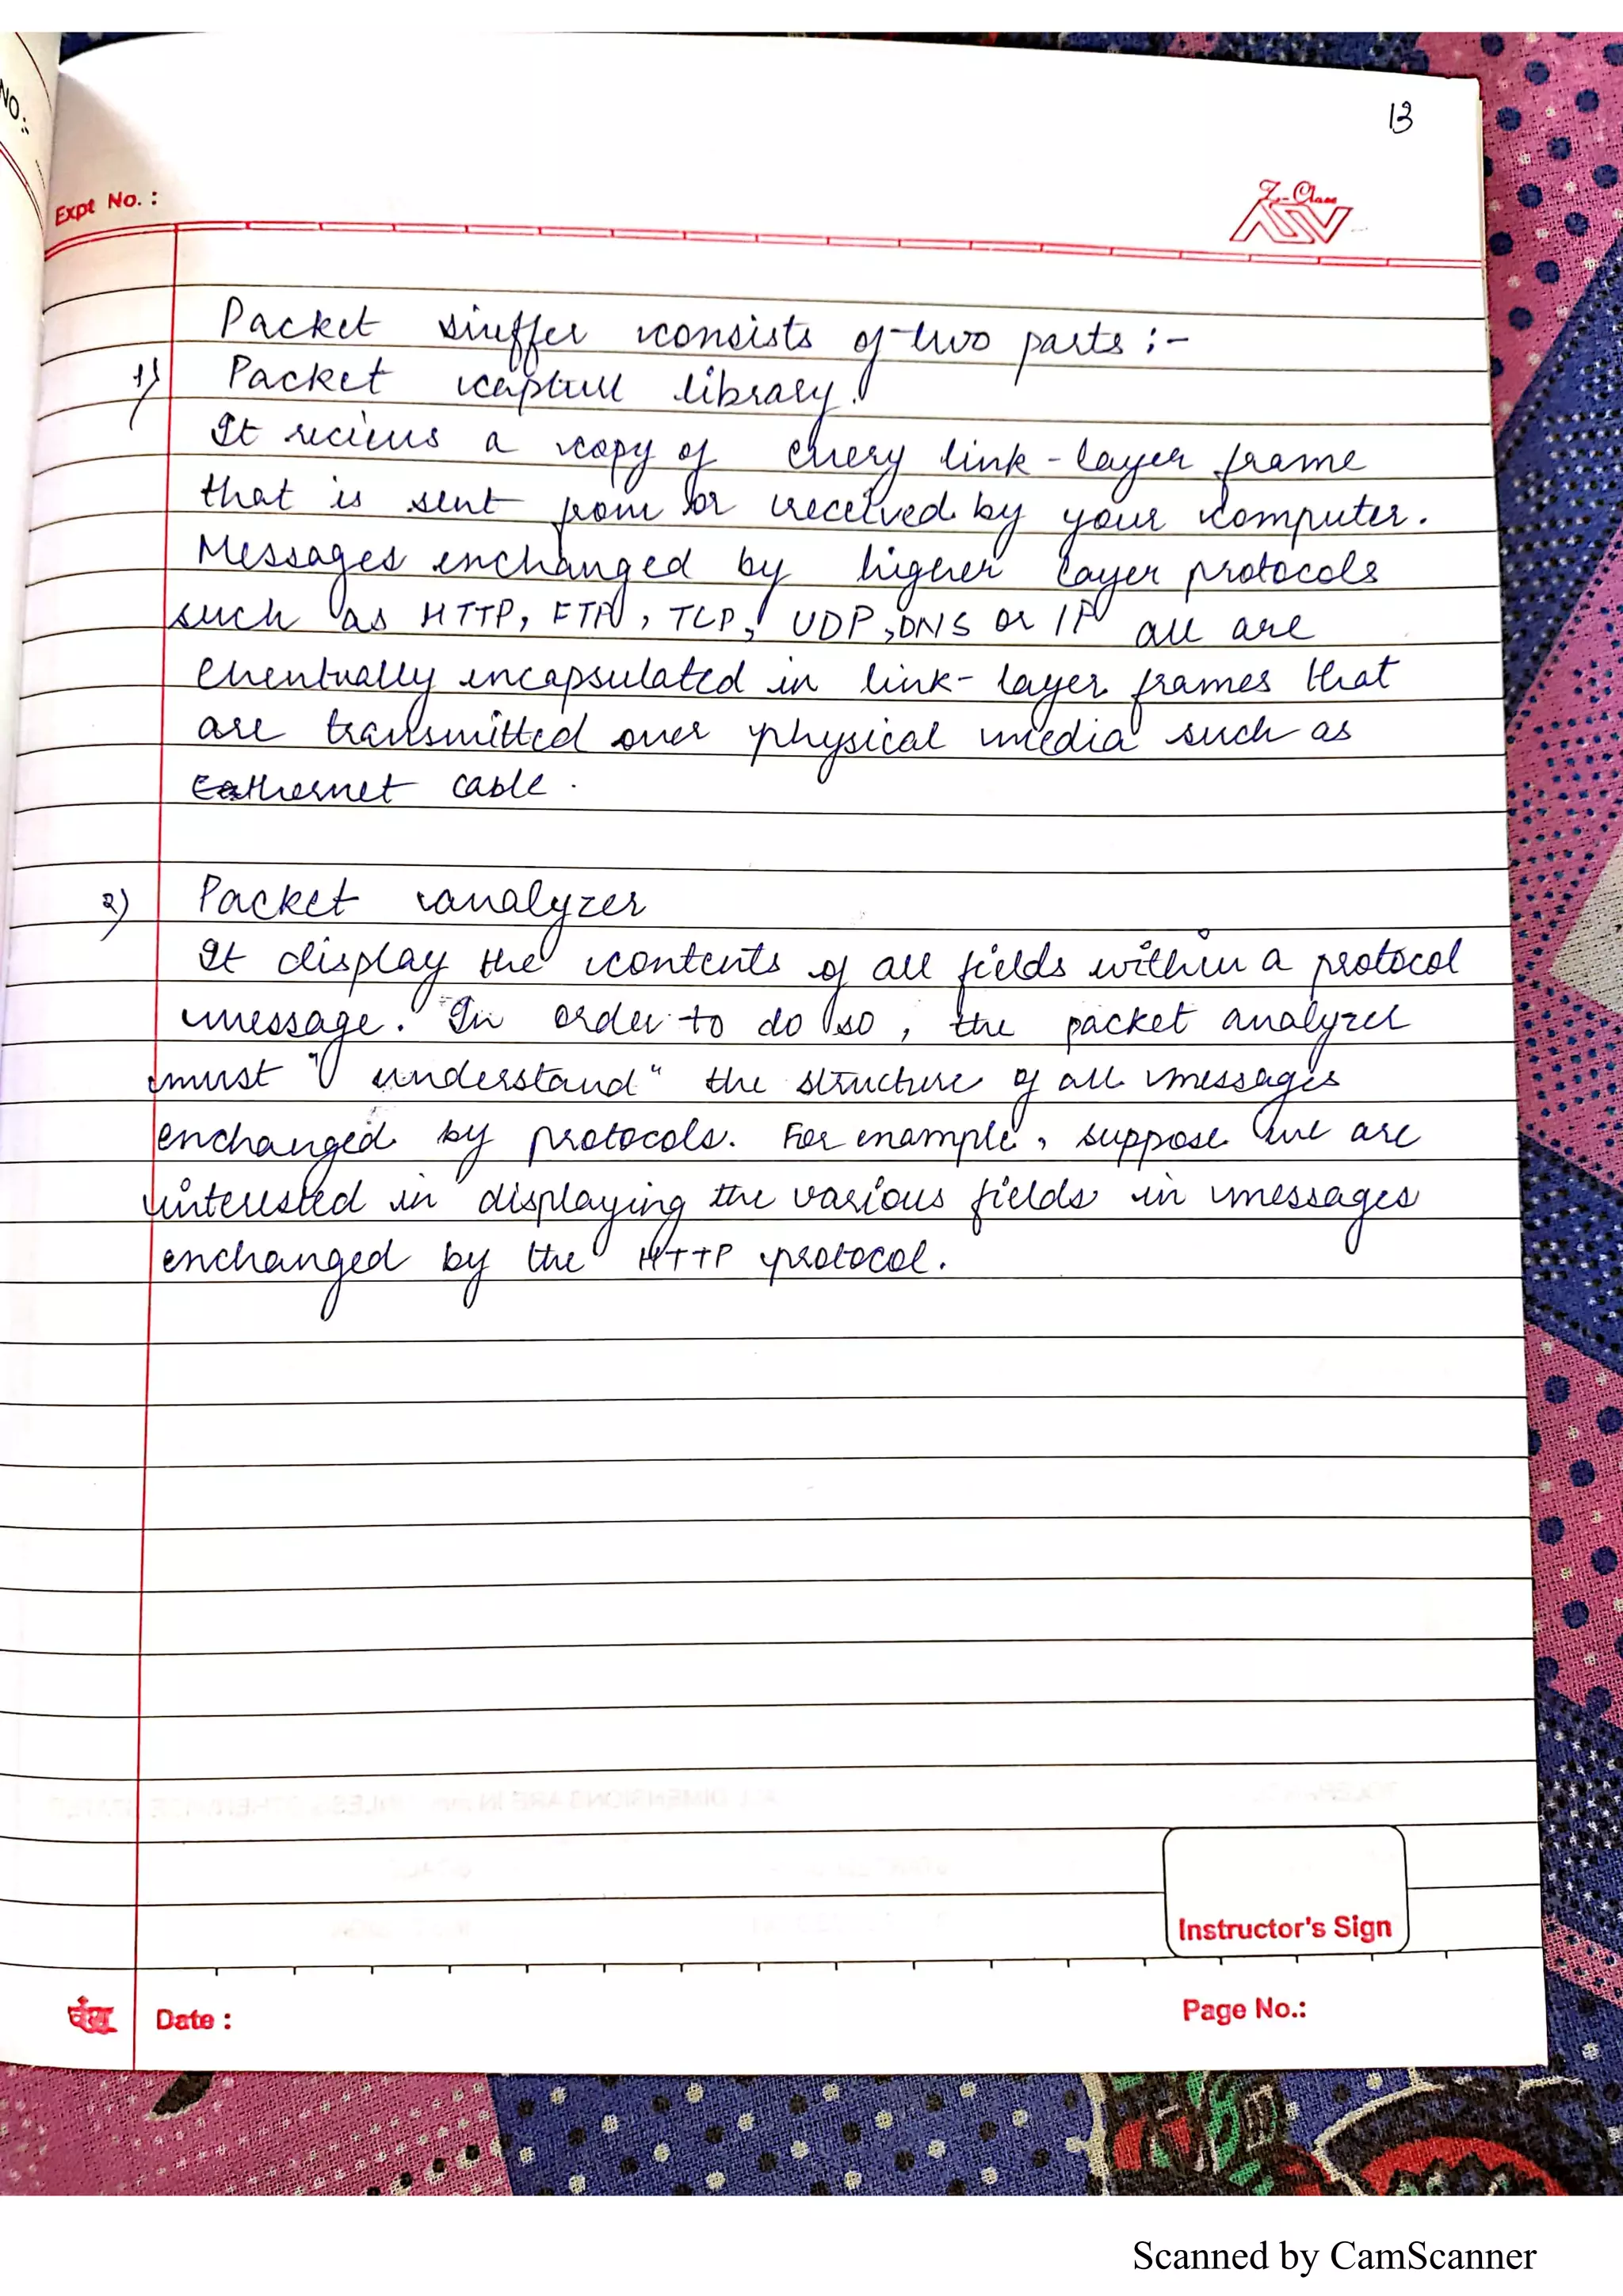 NO.:-
13
Expt No. :
Z-Class
Packet sniffer consists of two parts :-
1) Packet capture library.
It recieves a copy of every link-layer frame
that is sent from or received by your computer.
Messages exchanged by higher layer protocols
such as HTTP, FTP, TCP, UDP, DNS or IP all are
eventually encapsulated in link-layer frames that
are transmitted over physical media such as
Eathernet cable.
2) Packet analyzer
It display the contents of all fields within a protocol
message. In order to do so, the packet analyzer
must "understand" the structure of all messages
exchanged by protocols. For example, suppose we are
interested in displaying the various fields in messages
exchanged by the HTTP protocol.
Instructor's Sign
Date :
Page No.:
Scanned by CamScanner